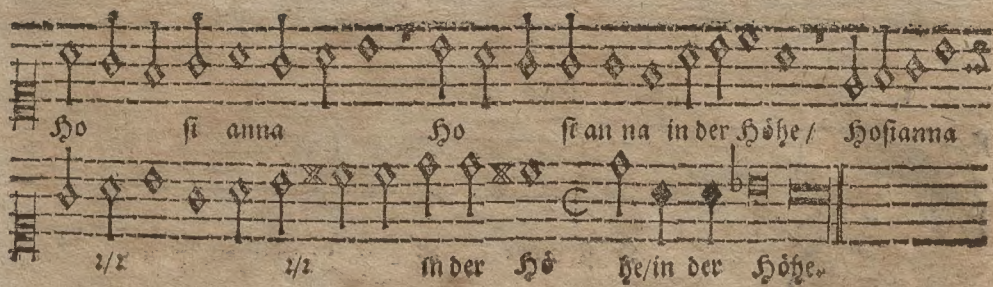 Ho si anna Ho si an na in der Höhe/ Hosianna
ꝛ/ꝛ ꝛ/ꝛ in der Hö he/in der Höhe.